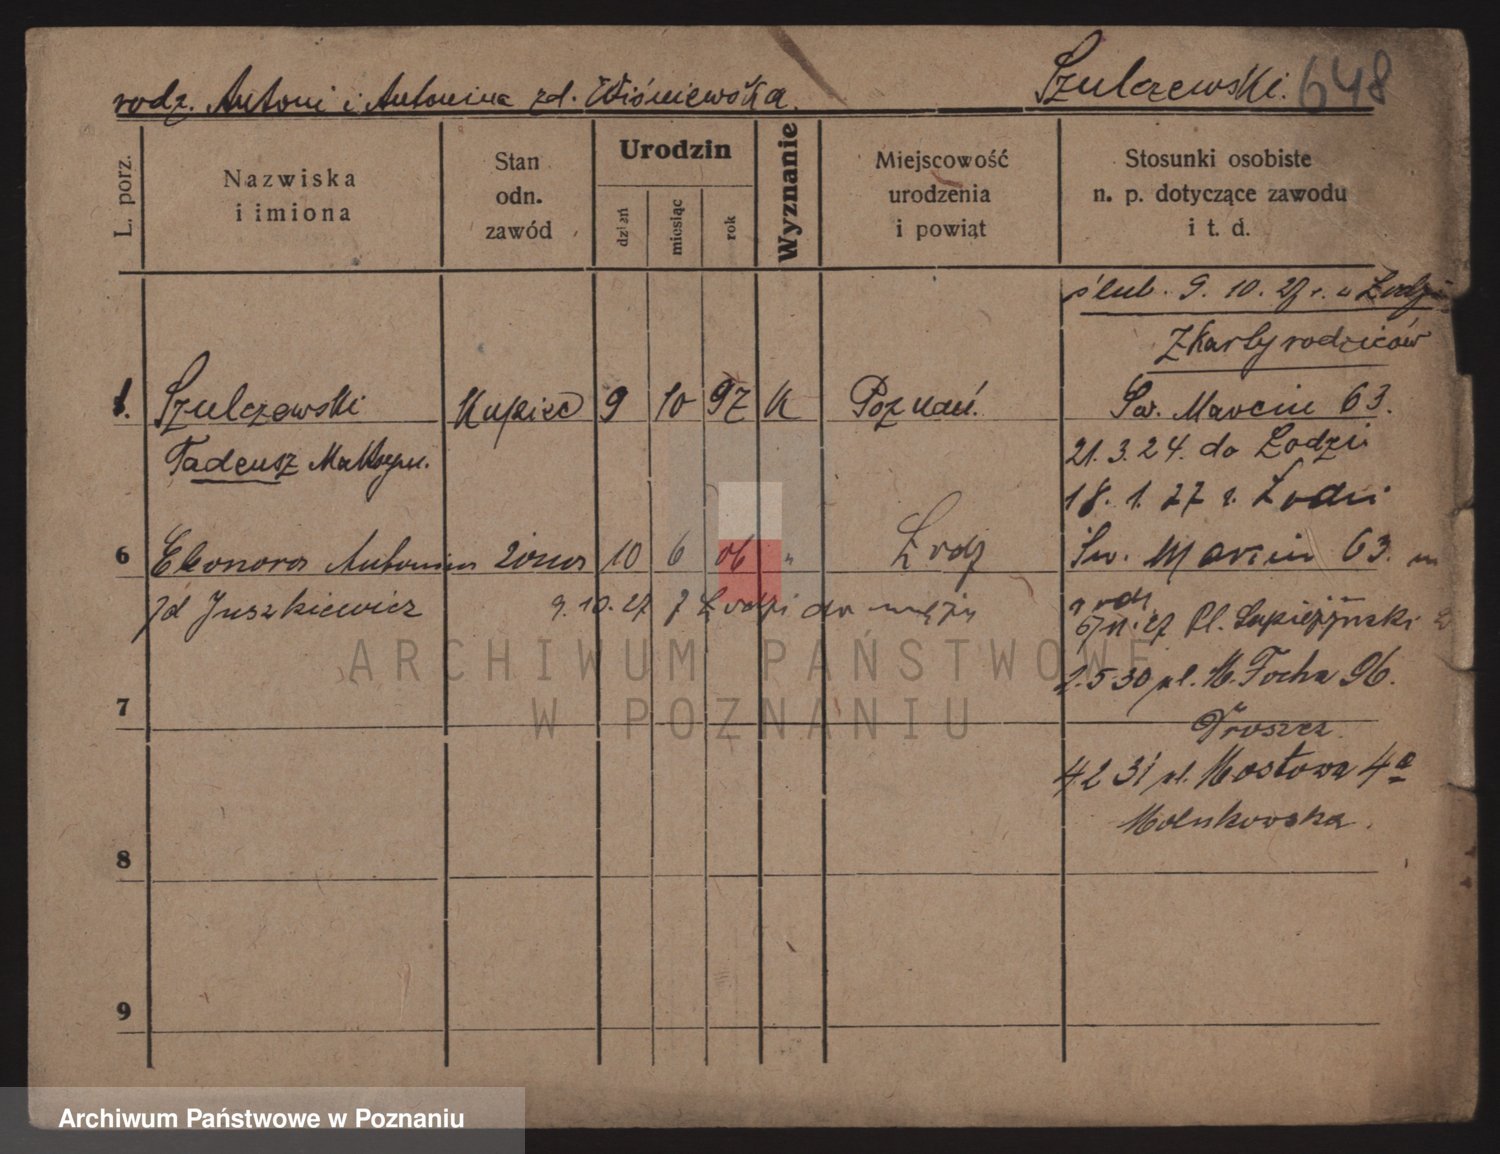 rodz. Antoni i Antonina zd. Wiśniewska. Szulczewski. 648
L. porz.
Nazwiska
i imiona
Stan
odn.
zawód
Urodzin
dzień
miesiąc
rok
Wyznanie
Miejscowość
urodzenia
i powiąt
Stosunki osobiste
n. p. dotyczące zawodu
i t. d.
ślub. 9. 10. 27 r. w Łodzi
Z karty rodziców
1. Szulczewski Kupiec 9 10 97 K Poznań. Św. Marcin 63.
Tadeusz 21. 3. 24. do Łodzi
18. 1. 27 z Łodzi
6 Eleonora Antonina żona 10 6 06 " Łódź Św. Marcin 63. m
zd Juszkiewicz 9. 10. 27 z Łodzi do męża
6/11. 27 Pl. Sapieżyński 2
2. 5 30 pl. M. Focha 96.
7
4 2 31 pl. Mostowa 4a
8
9
ARCHIWUM PAŃSTWOWE
W POZNANIU
Archiwum Państwowe w Poznaniu